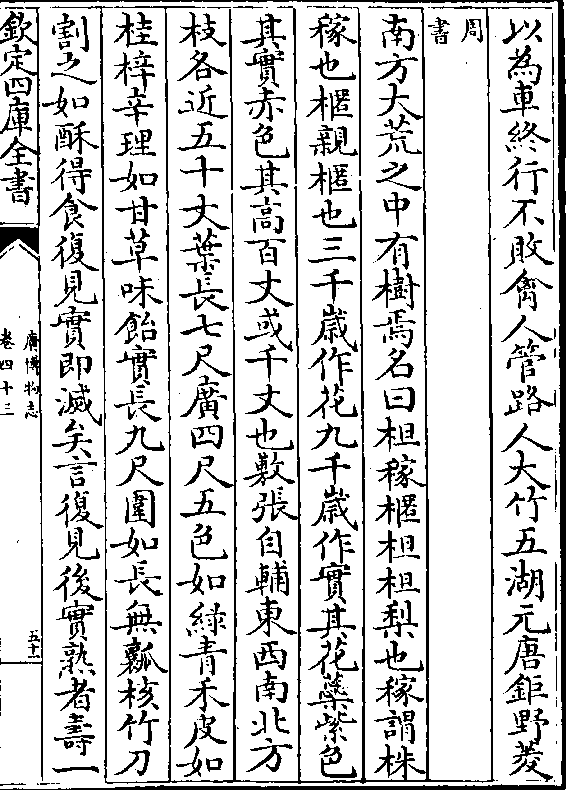 以為車終行不敗禽人管路人大竹五湖元唐鉅野菱
周書
南方大荒之中有樹焉名曰柤稼櫃柤柤梨也稼謂株
稼也櫃親櫃也三千歲作花九千歲作實其花蘂紫色
其實赤色其高百丈或千丈也敷張自輔東西南北方
枝各近五十丈葉長七尺廣四尺五色如綠青禾皮如
桂梓辛理如甘草味飴實長九尺圍如長無瓤核竹刀
割之如酥得食復見實即滅矣言復見後實熟者壽一
欽定四庫全書
廣博物志
卷四十三
五十一